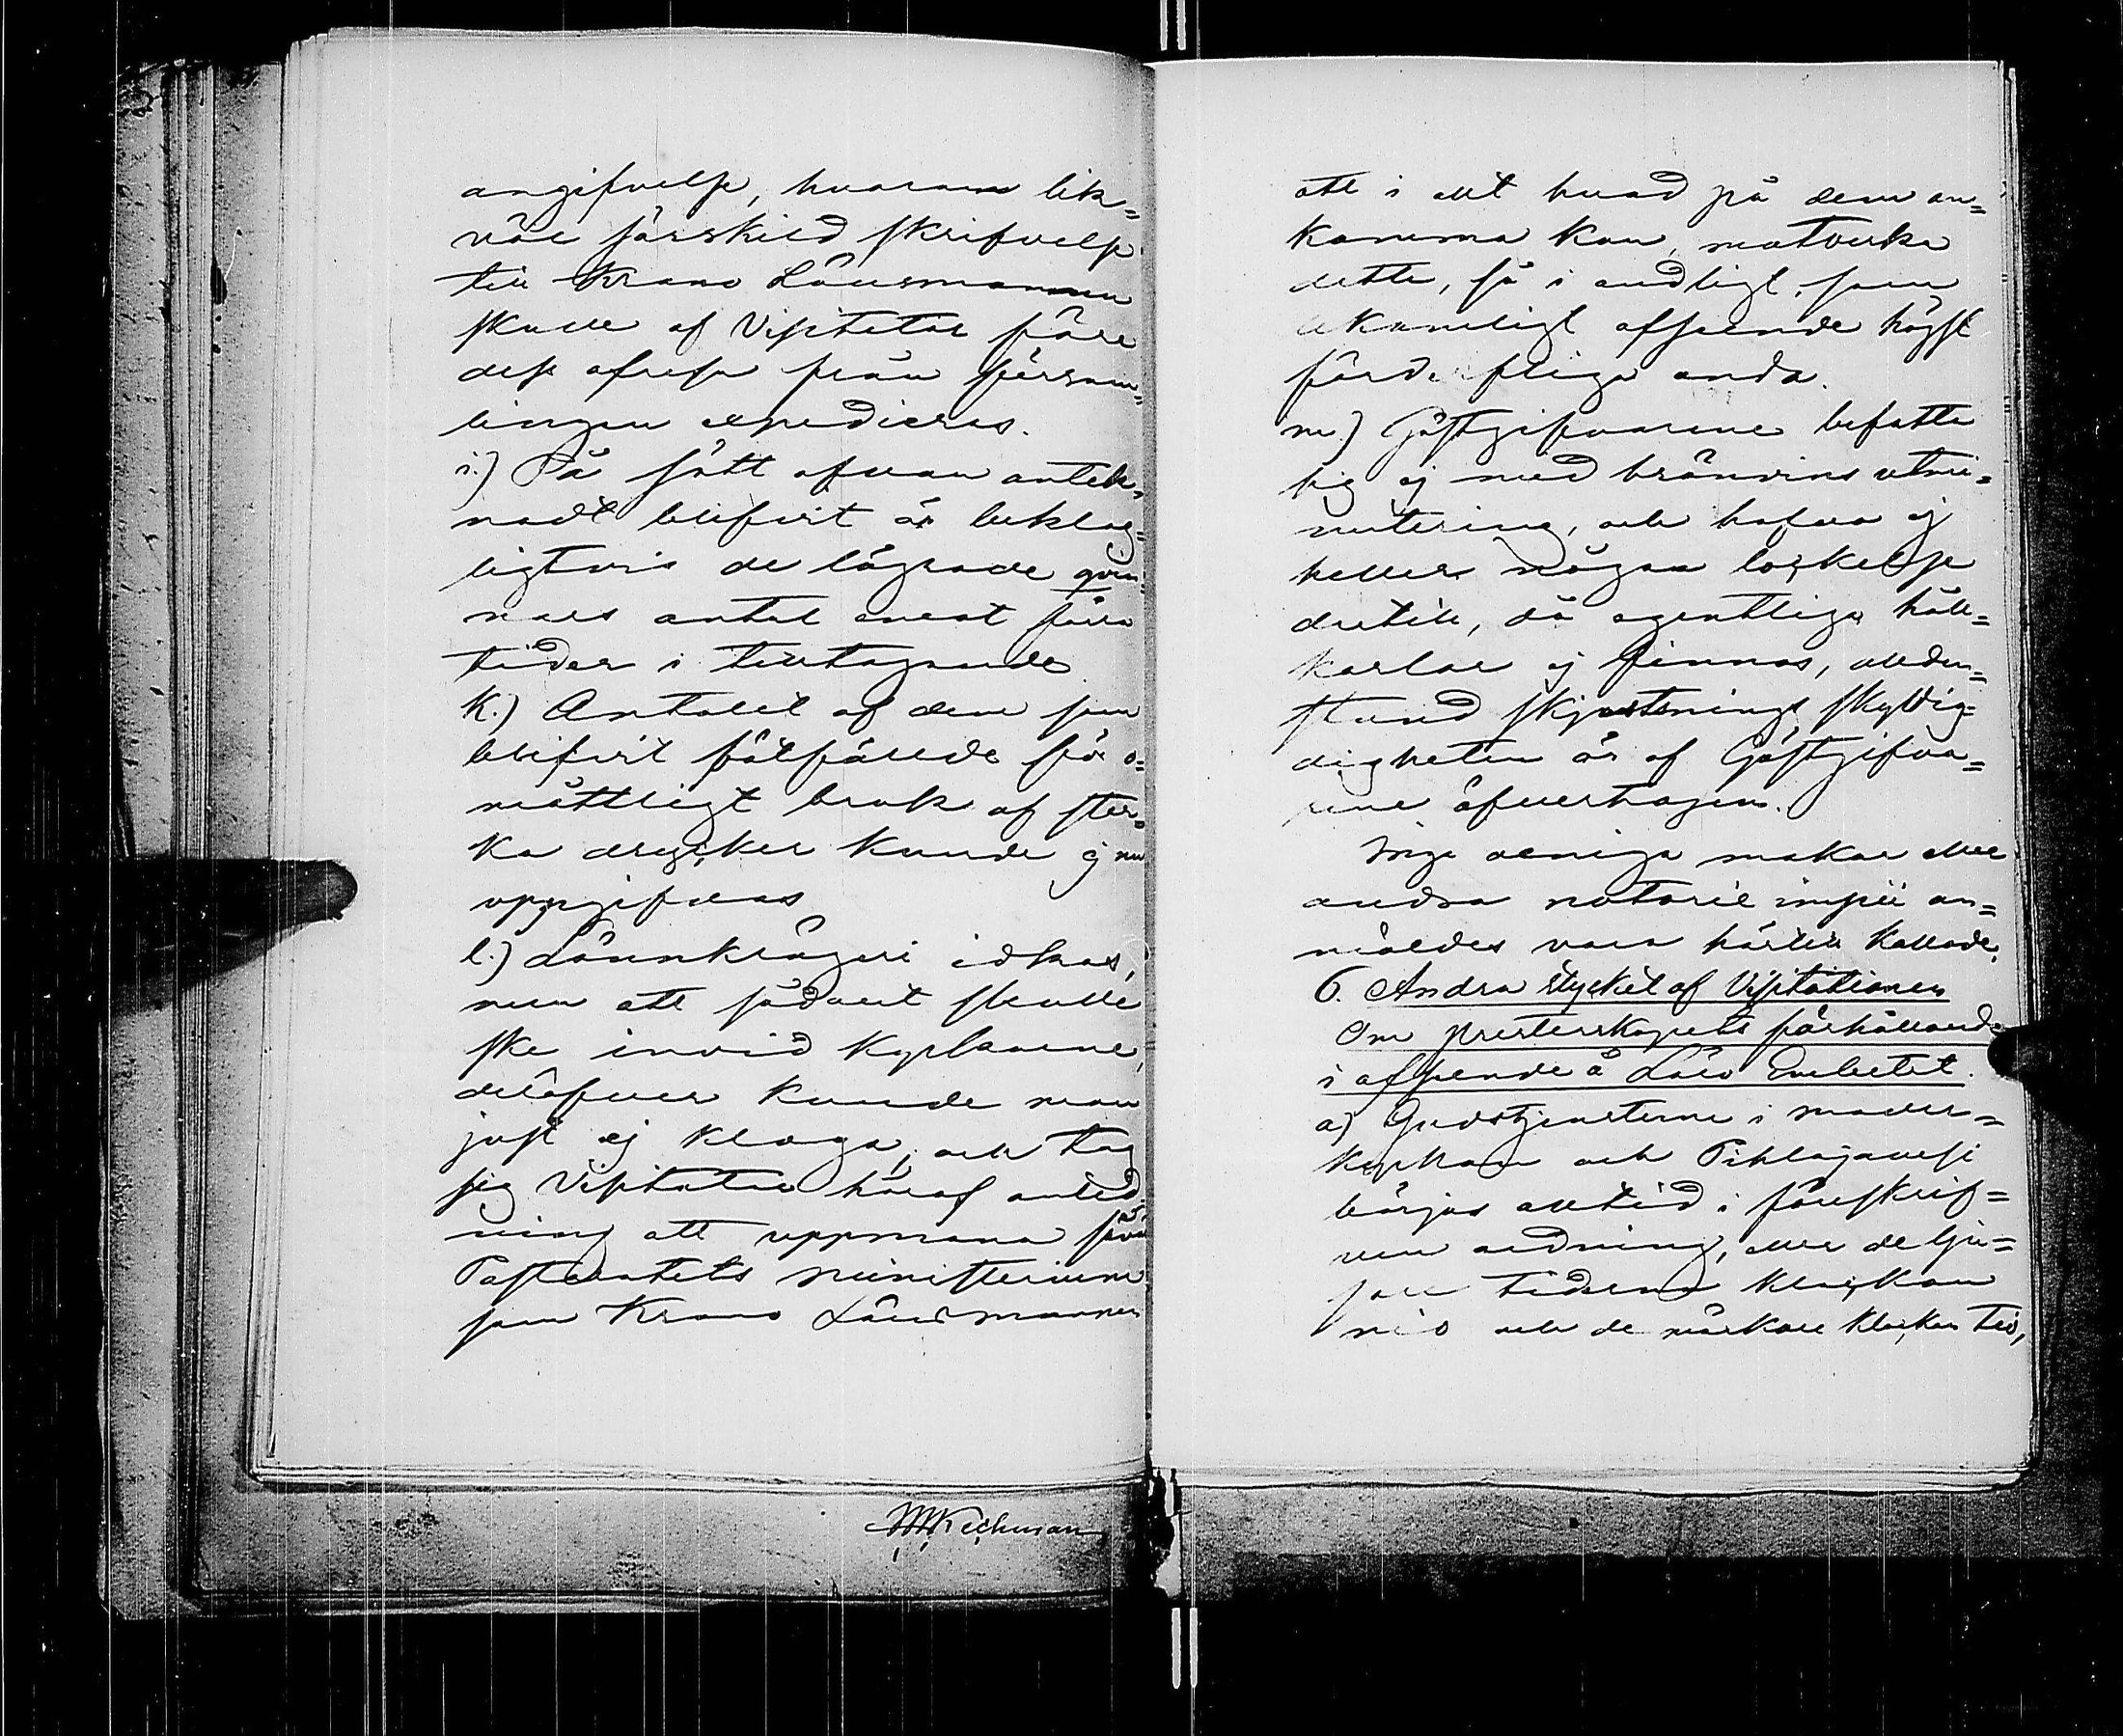 angifvelse, hvarom lik=
väl särskild skrifvelse
till Krono Länsmannen
skulle af Visitator före
dess afresa från försam=
lingen expedieras.
i.) På sätt ofvan antek=
nadt blifvit är beklag=
ligtvis de lägrade qvin=
nors antal emot förra
tider i tilltagande
k.) Antalet af dem som
blifvit sakfällde för o=
måttligt bruk af star=
ka drycker kunde ej nu
uppgifvas
l.) Lönnkrögeri idkas,
men att sådant skulle
ske invid kyrkorne,
deröfver kunde man
just ej klaga, och tog
sig Visitator häraf anled=
ning att uppmana såväl
Pastoratets ministerium
som Krono Länsmannen
MKechman
att i allt hvad på dem an=
komma kan, motverka
detta, så i andligt, som
lekamligt afseende högst
förderfliga onda.
m.) Gästgifvarene befatta
sig ej med bränvins utmi=
nutering, och hafva ej
heller någon lockelse
dertill, då egentliga håll=
karlar ej finnas, allden=
stund skjutsnings skyldig=
digheten är af Gästgifva=
rene öfvertagen.
Inga oeniga makar eller
andra notorie impii an=
mäldes vara härtill kallade.
6. Andra stycket af Visitationen
Om Presterskapets förhållande
i afseende å Läro Embetet.
a) Gudstjensterne i moder=
kyrkan och Pihlajavesi
börjas alltid i föreskrif=
ven ordning, eller de lju=
sare tiderna klockan
nio och de mörkare klockan tio,